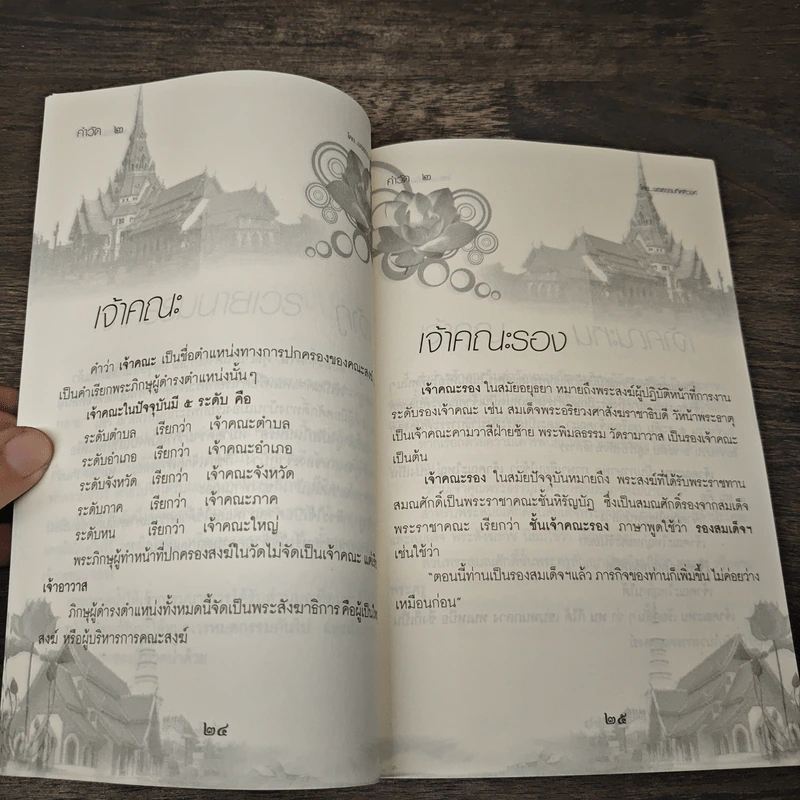 คำวัด ๒
เจ้าคณะ
คำว่า เจ้าคณะ เป็นชื่อตำแหน่งทางการปกครองของคณะสงฆ์
เป็นคำเรียกพระภิกษุผู้ดำรงตำแหน่งนั้นๆ
เจ้าคณะในปัจจุบันมี ๕ ระดับ คือ
ระดับตำบล เรียกว่า เจ้าคณะตำบล
ระดับอำเภอ เรียกว่า เจ้าคณะอำเภอ
ระดับจังหวัด เรียกว่า เจ้าคณะจังหวัด
ระดับภาค เรียกว่า เจ้าคณะภาค
ระดับหน เรียกว่า เจ้าคณะใหญ่
พระภิกษุผู้ทำหน้าที่ปกครองสงฆ์ในวัดไม่จัดเป็นเจ้าคณะ
เจ้าอาวาส
ภิกษุผู้ดำรงตำแหน่งทั้งหมดนี้จัดเป็นพระสังฆาธิการ คือผู้เป็น
สงฆ์ หรือผู้บริหารการคณะสงฆ์
๒๔
คำวัด ๒
เจ้าคณะรอง
เจ้าคณะรอง ในสมัยอยุธยา หมายถึงพระสงฆ์ผู้ปฏิบัติหน้าที่การงาน
ระดับรองเจ้าคณะ เช่น สมเด็จพระอริยวงศาสังฆราชาธิบดี วัหน้าพระธาตุ
เป็นเจ้าคณะคามวาสีฝ่ายซ้าย พระพิมลธรรม วัดรามาวาส เป็นรองเจ้าคณะ
เป็นต้น
เจ้าคณะรอง ในสมัยปัจจุบันหมายถึง พระสงฆ์ที่ได้รับพระราชทาน
สมณศักดิ์เป็นพระราชาคณะชั้นหิรัญบัฏ ซึ่งเป็นสมณศักดิ์รองจากสมเด็จ
พระราชาคณะ เรียกว่า ชั้นเจ้าคณะรอง ภาษาพูดใช้ว่า รองสมเด็จฯ
เช่นใช้ว่า
“ตอนนี้ท่านเป็นรองสมเด็จฯแล้ว ภารกิจของท่านก็เพิ่มขึ้น ไม่ค่อยว่าง
เหมือนก่อน”
๒๕